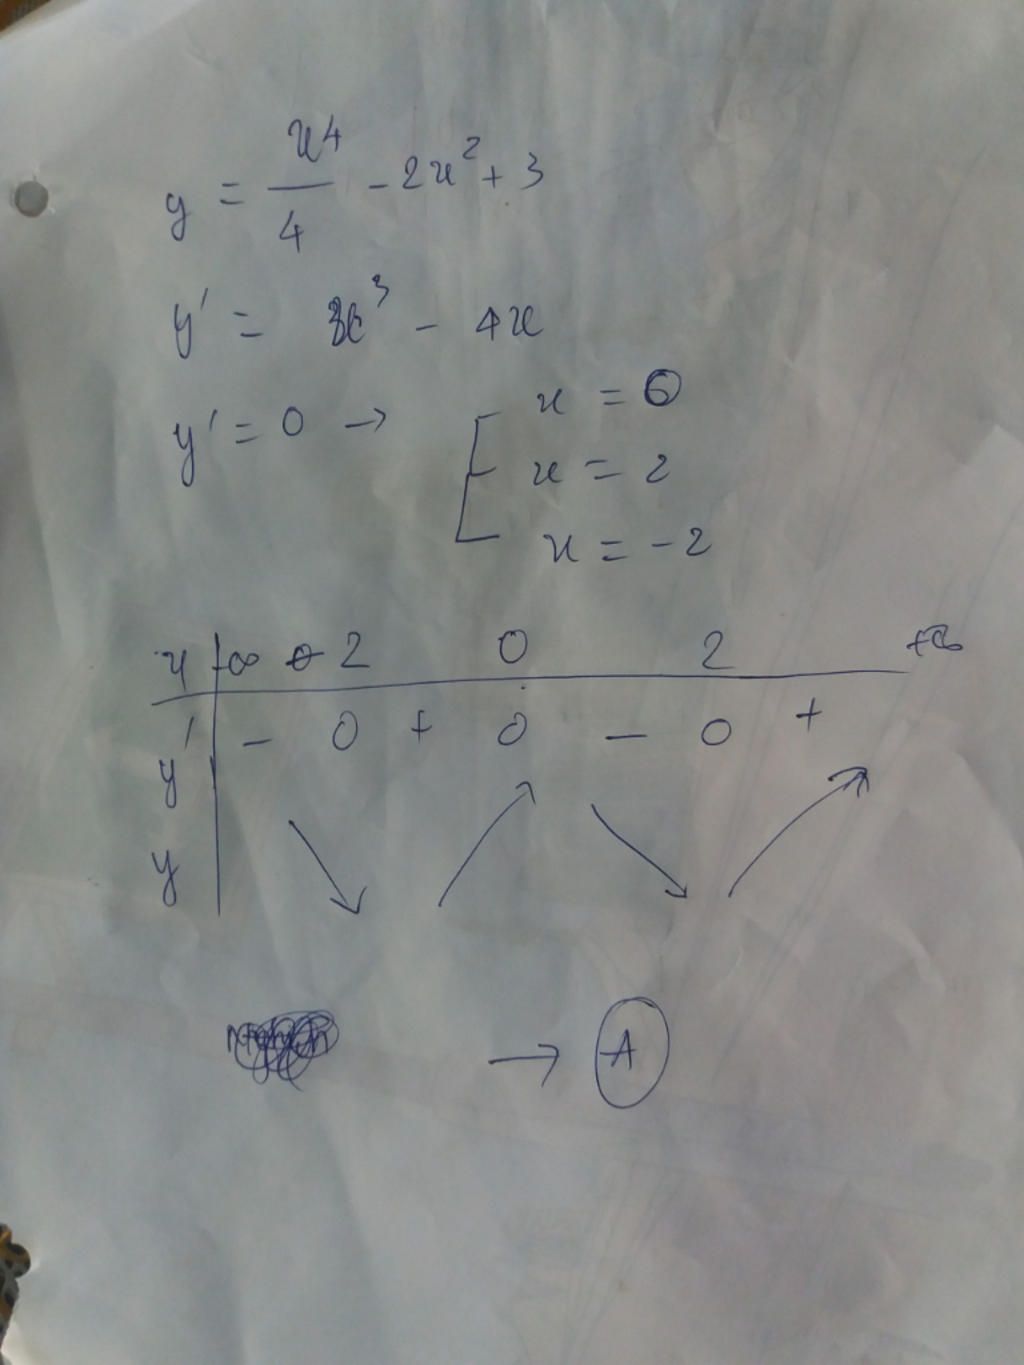 y = x⁴/4 - 2x² + 3
y' = x³ - 4x
y' = 0 → [ x = 0
x = 2
x = -2
x | -∞ -2 0 2 +∞
y' | - 0 + 0 - 0 +
y | ↘ ↗ ↘ ↗
→ A